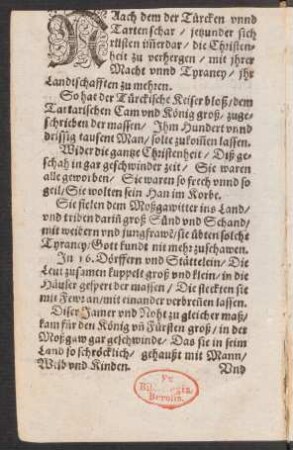 NAach dem der Türcken vnnd
Tartenschar / jetzunder sich
rüsten im̄erdar / die Christen-
heit zu verhergen / mit jhrer
Macht vnnd Tyraney / jhr
Landtschafften zu mehren.
So hat der Türckische Keiser bloß / dem
Tartarischen Cam vnd König groß / zuge-
schrieben der massen / Ihm Hundert vnnd
dreissig tausent Man / solte zukom̄en lassen.
Wider die gantze Christenheit / Diß ge-
schah in gar geschwinder zeit / Sie waren
alle geworben / Sie waren so frech vnnd so
geil / Sie wolten sein Han im Korbe.
Sie fielen dem Moßgawitter ins Land /
vnd triben dariñ groß Sünd vnd Schand /
mit weibern vnd jungfrawē / sie übten solche
Tyraney / Gott kundt nit mehr zuschawen.
In 16. Dörffern vnd Stättelein / Die
Leut zusamen kuppelt groß vnd klein / in die
Häuser gespert der massen / Die steckten sie
mit Fewr an / mit einander verbreñen lassen.
Diser Jamer vnd Noht zu gleicher maß /
kam für den König vñ Fürsten groß / in der
Moßgaw gar geschwinde / Das sie in seim
Land so schröcklich / gehaußt mit Mann /
Weib vnd Kinden. Vnd
Ex
Berolin.